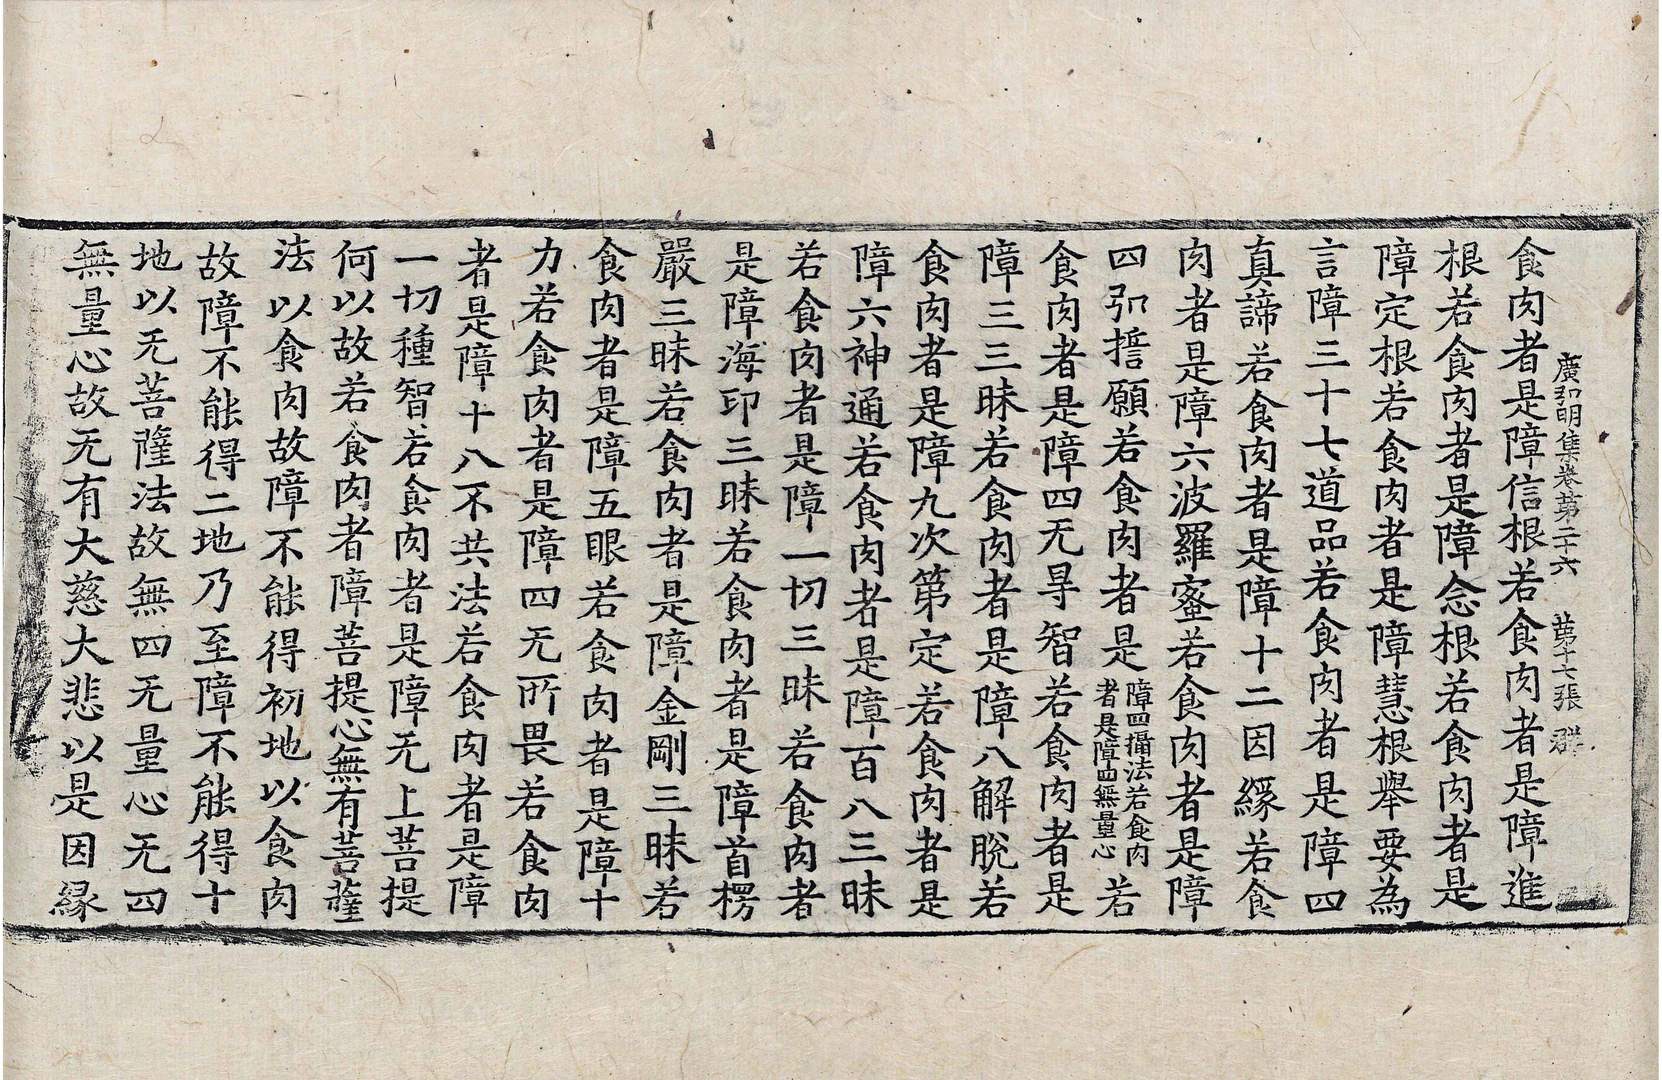 廣弘明集卷第二十六　第十七張　群
食肉者是障信根若食肉者是障進
根若食肉者是障念根若食肉者是
障定根若食肉者是障慧根舉要為
言障三十七道品若食肉者是障四
真諦若食肉者是障十二因緣若食
肉者是障六波羅蜜若食肉者是障
四弘誓願若食肉者是障四攝法若食肉者是障四無量心若
食肉者是障四无㝵智若食肉者是
障三三昧若食肉者是障八解脫若
食肉者是障九次第定若食肉者是
障六神通若食肉者是障百八三昧
若食肉者是障一切三昧若食肉者
是障海印三昧若食肉者是障首楞
嚴三昧若食肉者是障金剛三昧若
食肉者是障五眼若食肉者是障十
力若食肉者是障四无所畏若食肉
者是障十八不共法若食肉者是障
一切種智若食肉者是障无上菩提
何以故若食肉者障菩提心無有菩薩
法以食肉故障不能得初地以食肉
故障不能得二地乃至障不能得十
地以无菩薩法故無四无量心无四
無量心故无有大慈大悲以是因緣